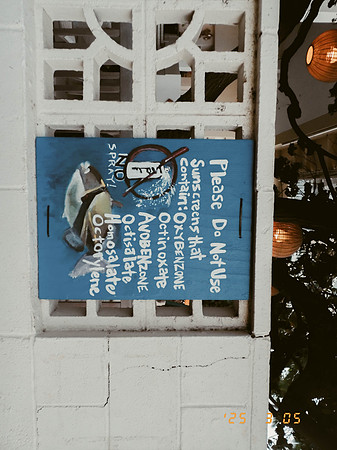 Please Do Not Use
Sunscreens that
Contain: OXYBENZONE
Octinoxate
AVOBENZONE
Octisalate
Homosalate
Octocrylene
NO
SPRAY!
'25 8 05